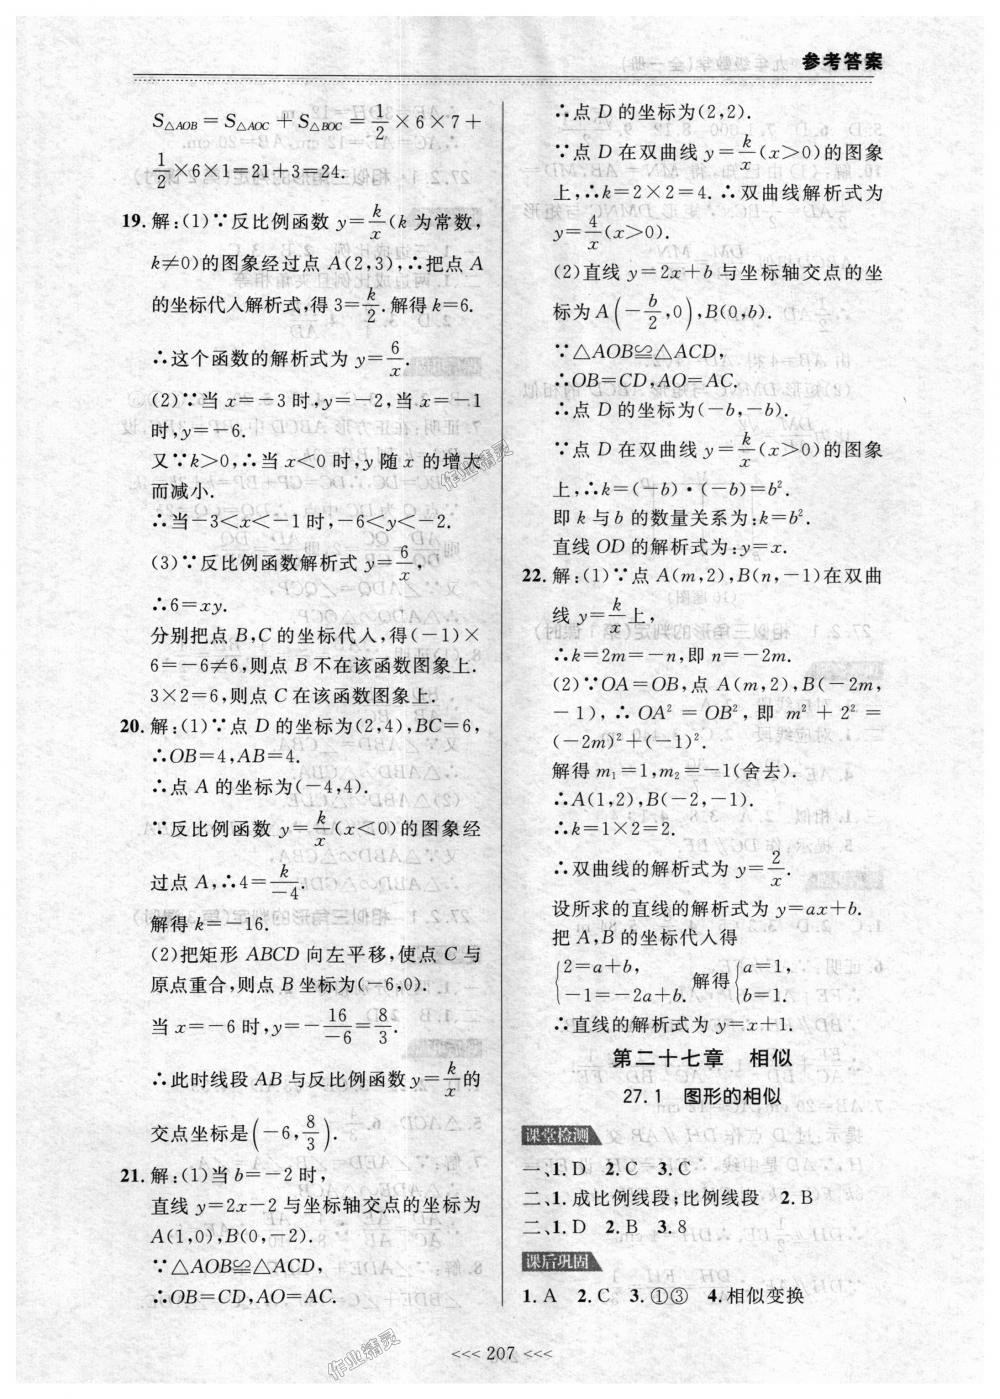 参考答案
S△AOB=S△AOC+S△BOC=1/2×6×7+
1/2×6×1=21+3=24.
19. 解:(1)∵反比例函数 y=k/x(k 为常数,
k≠0)的图象经过点 A(2,3),∴把点 A
的坐标代入解析式,得 3=k/2.解得 k=6.
∴这个函数的解析式为 y=6/x.
(2)∵当 x=-3 时,y=-2,当 x=-1
时,y=-6.
又∵k>0,∴当 x<0 时,y 随 x 的增大
而减小.
∴当-3<x<-1 时,-6<y<-2.
(3)∵反比例函数解析式 y=6/x,
∴6=xy.
分别把点 B,C 的坐标代入,得(-1)×
6=-6≠6,则点 B 不在该函数图象上.
3×2=6,则点 C 在该函数图象上.
20. 解:(1)∵点 D 的坐标为(2,4),BC=6,
∴OB=4,AB=4.
∴点 A 的坐标为(-4,4).
∵反比例函数 y=k/x(x<0)的图象经
过点 A,∴4=k/-4.
解得 k=-16.
(2)把矩形 ABCD 向左平移,使点 C 与
原点重合,则点 B 坐标为(-6,0).
当 x=-6 时,y=-16/-6=8/3.
∴此时线段 AB 与反比例函数 y=k/x的
交点坐标是(-6,8/3).
21. 解:(1)当 b=-2 时,
直线 y=2x-2 与坐标轴交点的坐标为
A(1,0),B(0,-2).
∵△AOB≌△ACD,
∴OB=CD,AO=AC.
∴点 D 的坐标为(2,2).
∵点 D 在双曲线 y=k/x(x>0)的图象
上,∴k=2×2=4.∴双曲线解析式为
y=4/x(x>0).
(2)直线 y=2x+b 与坐标轴交点的坐
标为 A(-b/2,0),B(0,b).
∵△AOB≌△ACD,
∴OB=CD,AO=AC.
∴点 D 的坐标为(-b,-b).
∵点 D 在双曲线 y=k/x(x>0)的图象
上,∴k=(-b)·(-b)=b².
即 k 与 b 的数量关系为:k=b².
直线 OD 的解析式为:y=x.
22. 解:(1)∵点 A(m,2),B(n,-1)在双曲
线 y=k/x上,
∴k=2m=-n,即 n=-2m.
(2)∵OA=OB,点 A(m,2),B(-2m,
-1),∴OA²=OB²,即 m²+2²=
(-2m)²+(-1)².
解得 m₁=1,m₂=-1(舍去).
∴A(1,2),B(-2,-1).
∴k=1×2=2.
∴双曲线的解析式为 y=2/x.
设所求的直线的解析式为 y=ax+b.
把 A,B 的坐标代入得
{2=a+b, -1=-2a+b. 解得{a=1, b=1.
∴直线的解析式为 y=x+1.
第二十七章 相似
27.1 图形的相似
课堂检测
一、1. D 2. C 3. C
二、1. 成比例线段;比例线段 2. B
二、1. D 2. B 3. 8
课后巩固
1. A 2. C 3. ①③ 4. 相似变换
<<< 207 <<<
作业精灵
作业精灵